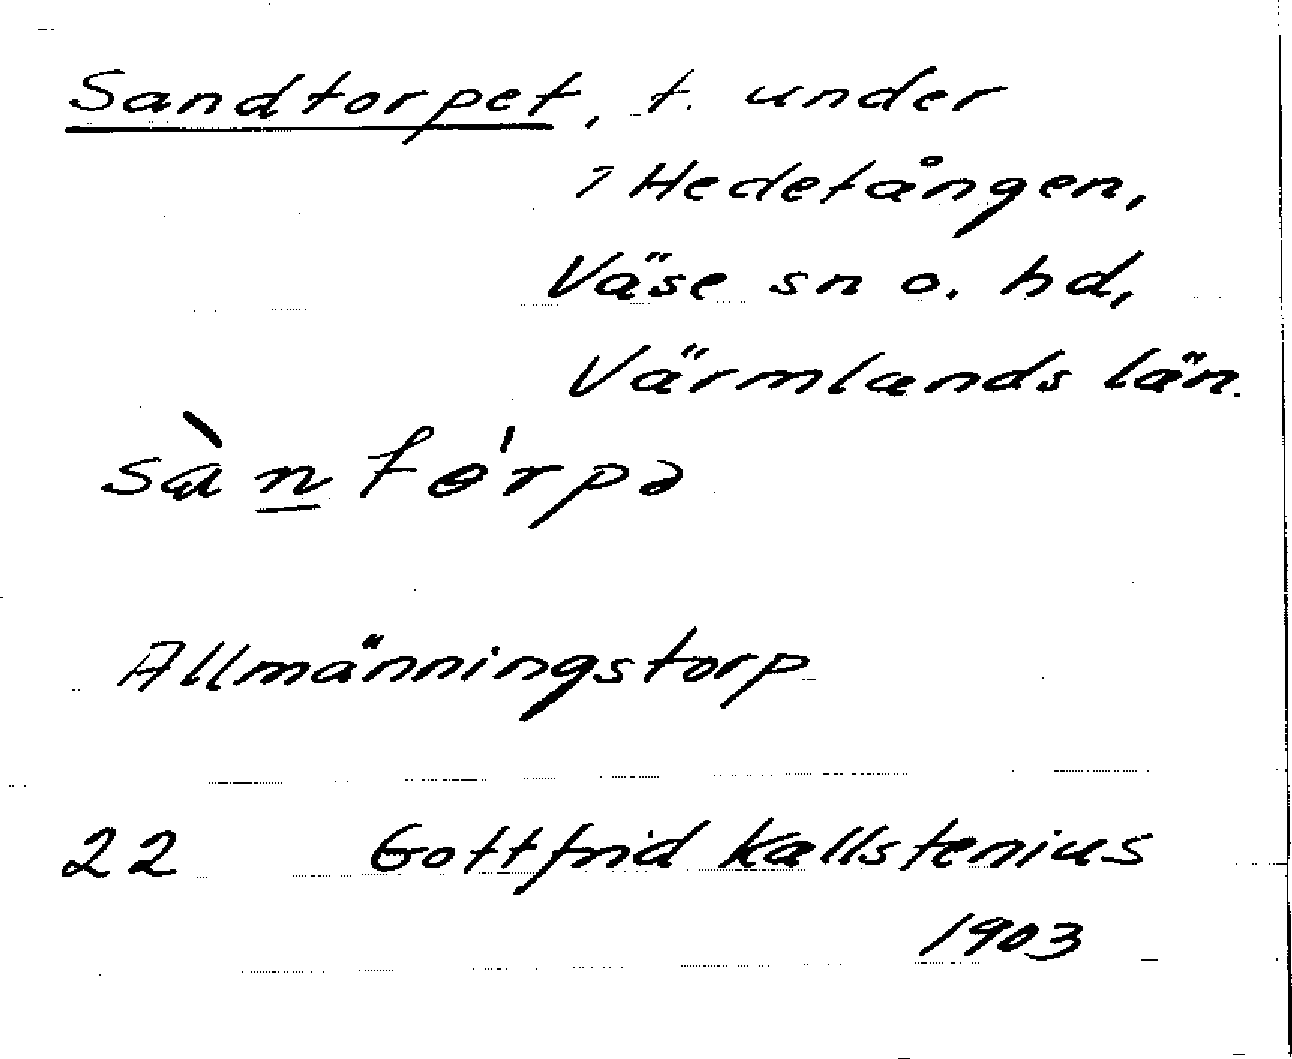 Sandtorpet, t. under
1 Hedetången,
Väse sn o. hd,
Värmlands län.
sàn tɵ́rpə
Allmänningstorp
22 Gottfrid Kallstenius
1903